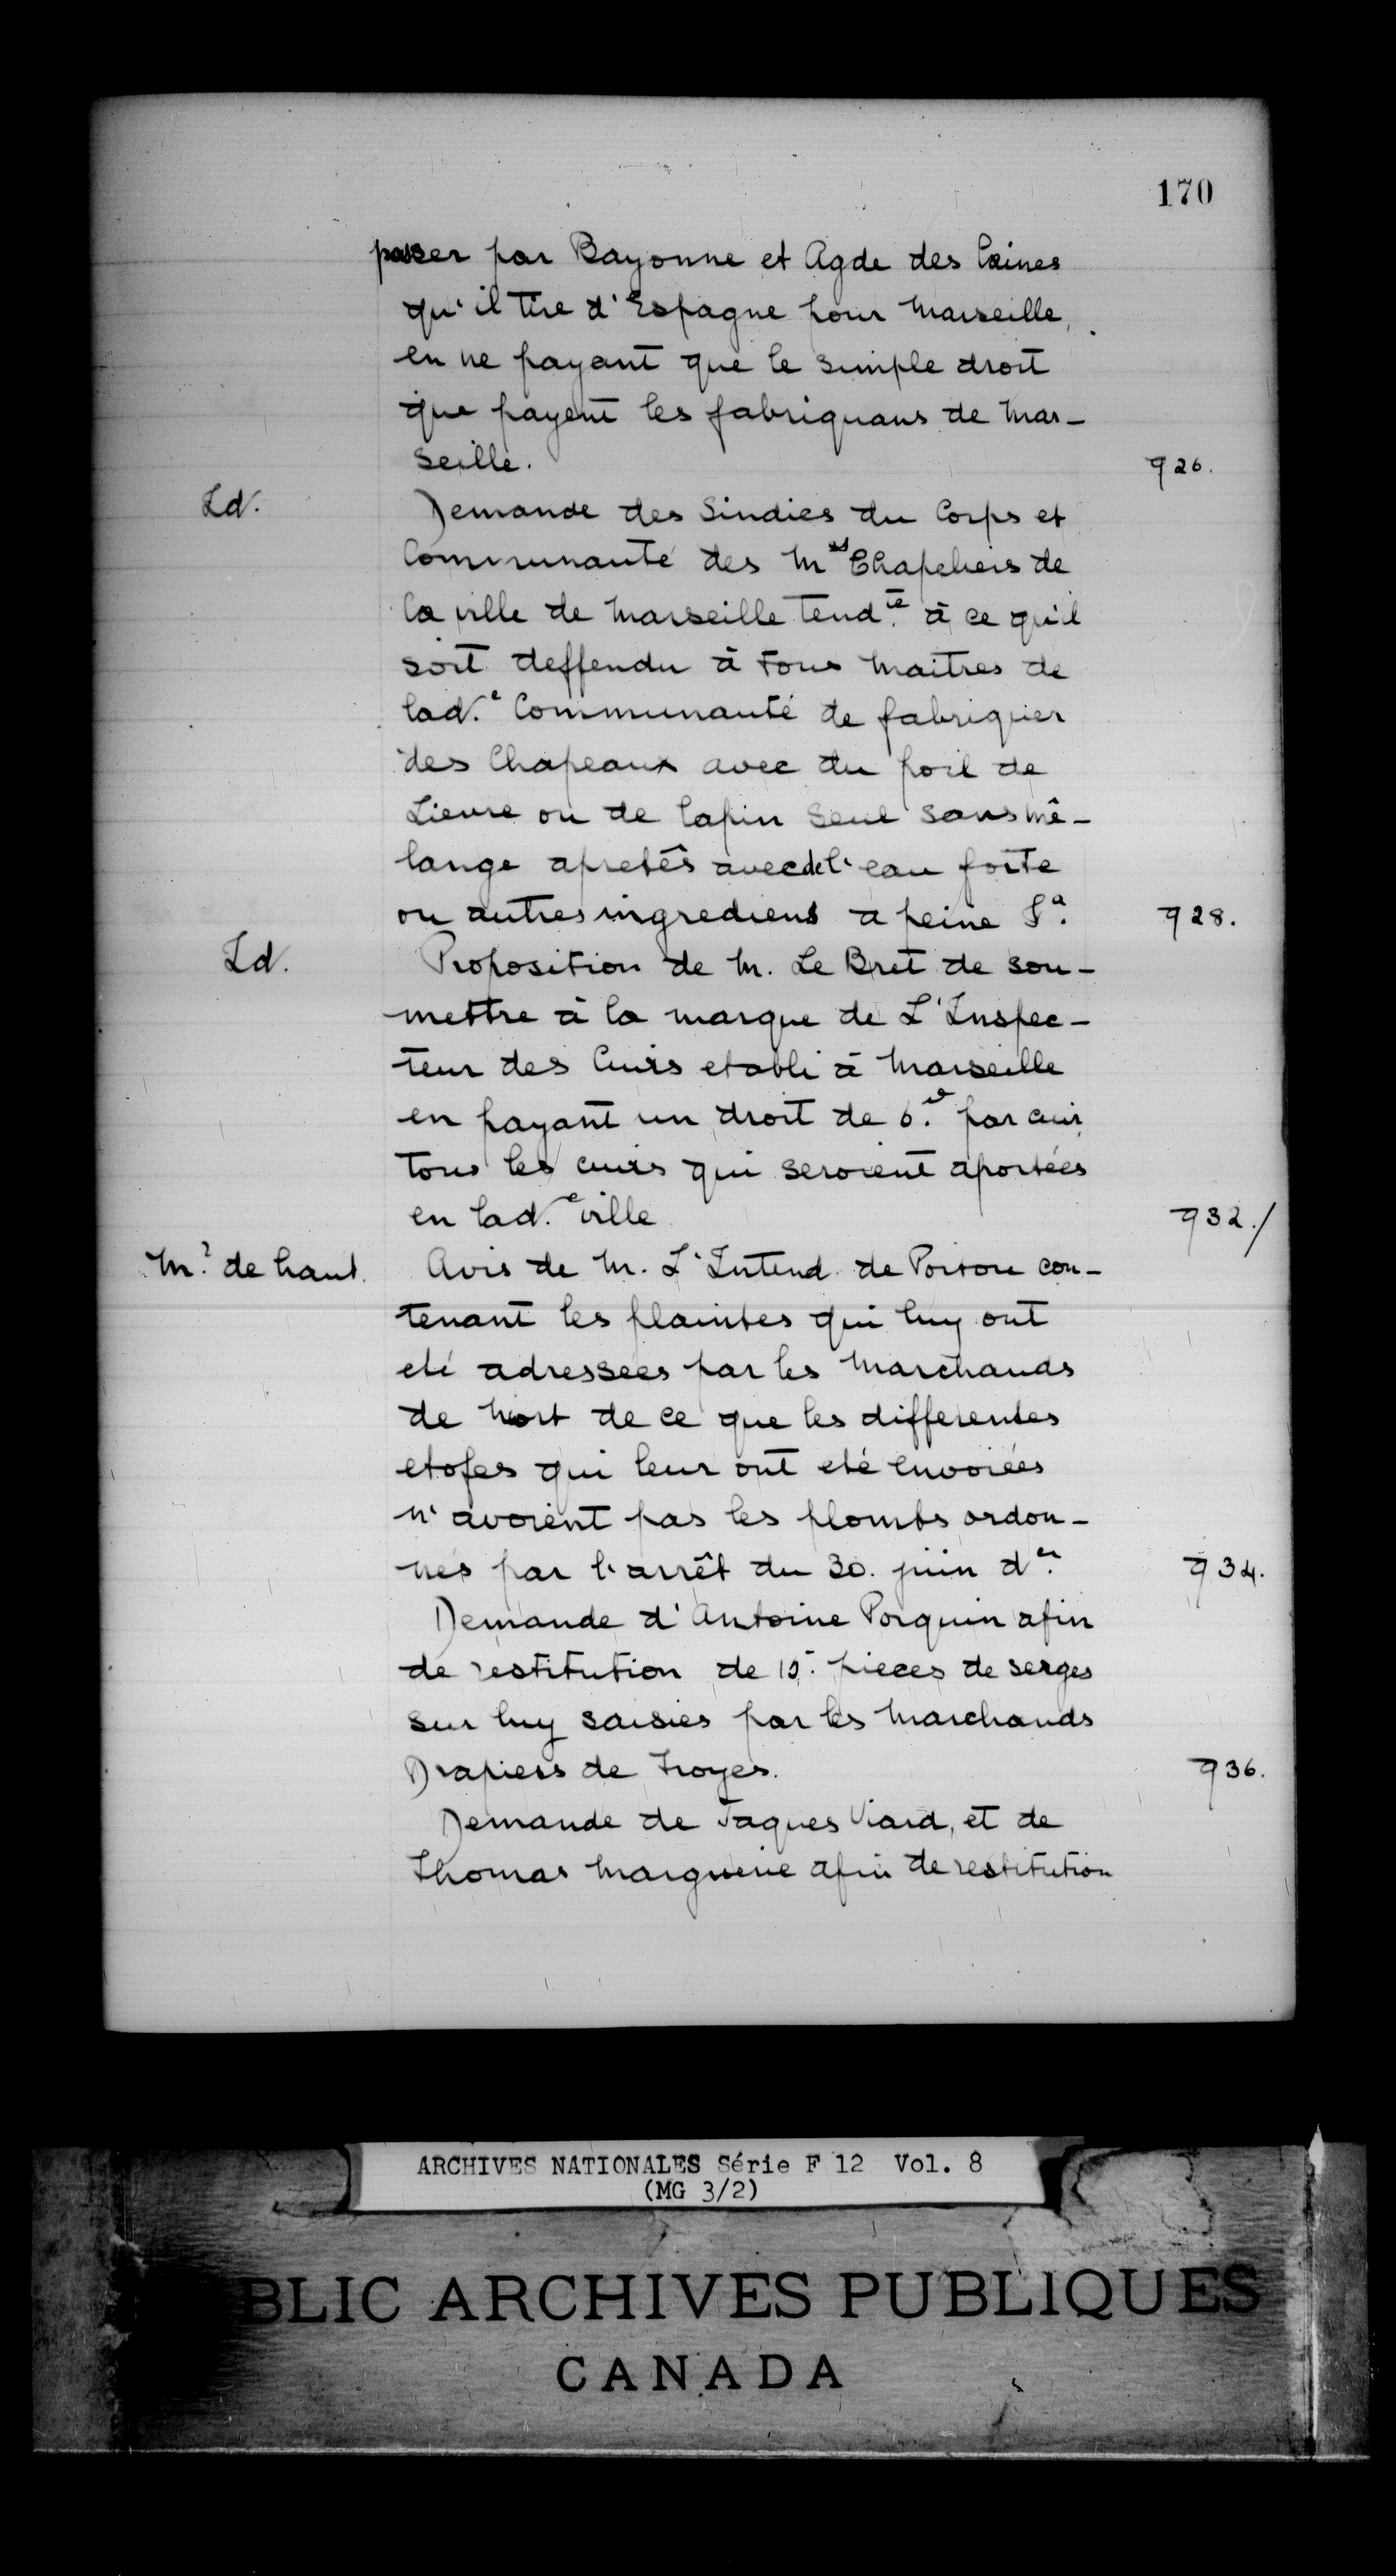 170
passer par Bayonne et Agde des laines
qu'il tire d'Espagne pour Marseille,
en ne payant que le simple droit
que payent les fabriquans de Mar-
seille. 926.
Id. Demande des Sindics du Corps et
Communauté des M^es Chapeliers de
la ville de Marseille tend.^te à ce qu'il
soit deffendu à tous maitres de
lad.^e Communauté de fabriquer
des Chapeaux avec du poil de
Lievre ou de lapin seul sans mê-
lange apretés avec de l'eau forte
ou autres ingrediens a peine &^a. 928.
Id. Proposition de M. Le Bret de sou-
mettre à la marque de L'Inspec-
teur des Cuirs etabli à Marseille
en payant un droit de 6.^d par cuir,
tous les cuirs qui seroient aportées
en lad.^e ville 932./
M.^r de haut. Avis de M. L'Intend. de Poitou con-
tenant les plaintes qui luy ont
eté adressées par les Marchands
de Niort de ce que les differentes
etofes qui leur ont eté envoiées
n'avoient pas les plombs ordon-
nés par l'arrêt du 30. juin d^er. 934.
Demande d'Antoine Porquin afin
de restitution de pieces de serges
sur luy saisies par les Marchands
Drapiers de Troyes. 936.
Demande de Jaques Viard, et de
Thomas Marguerie afin de restitution
ARCHIVES NATIONALES Série F 12 Vol. 8
(MG 3/2)
BLIC ARCHIVES PUBLIQUES
CANADA